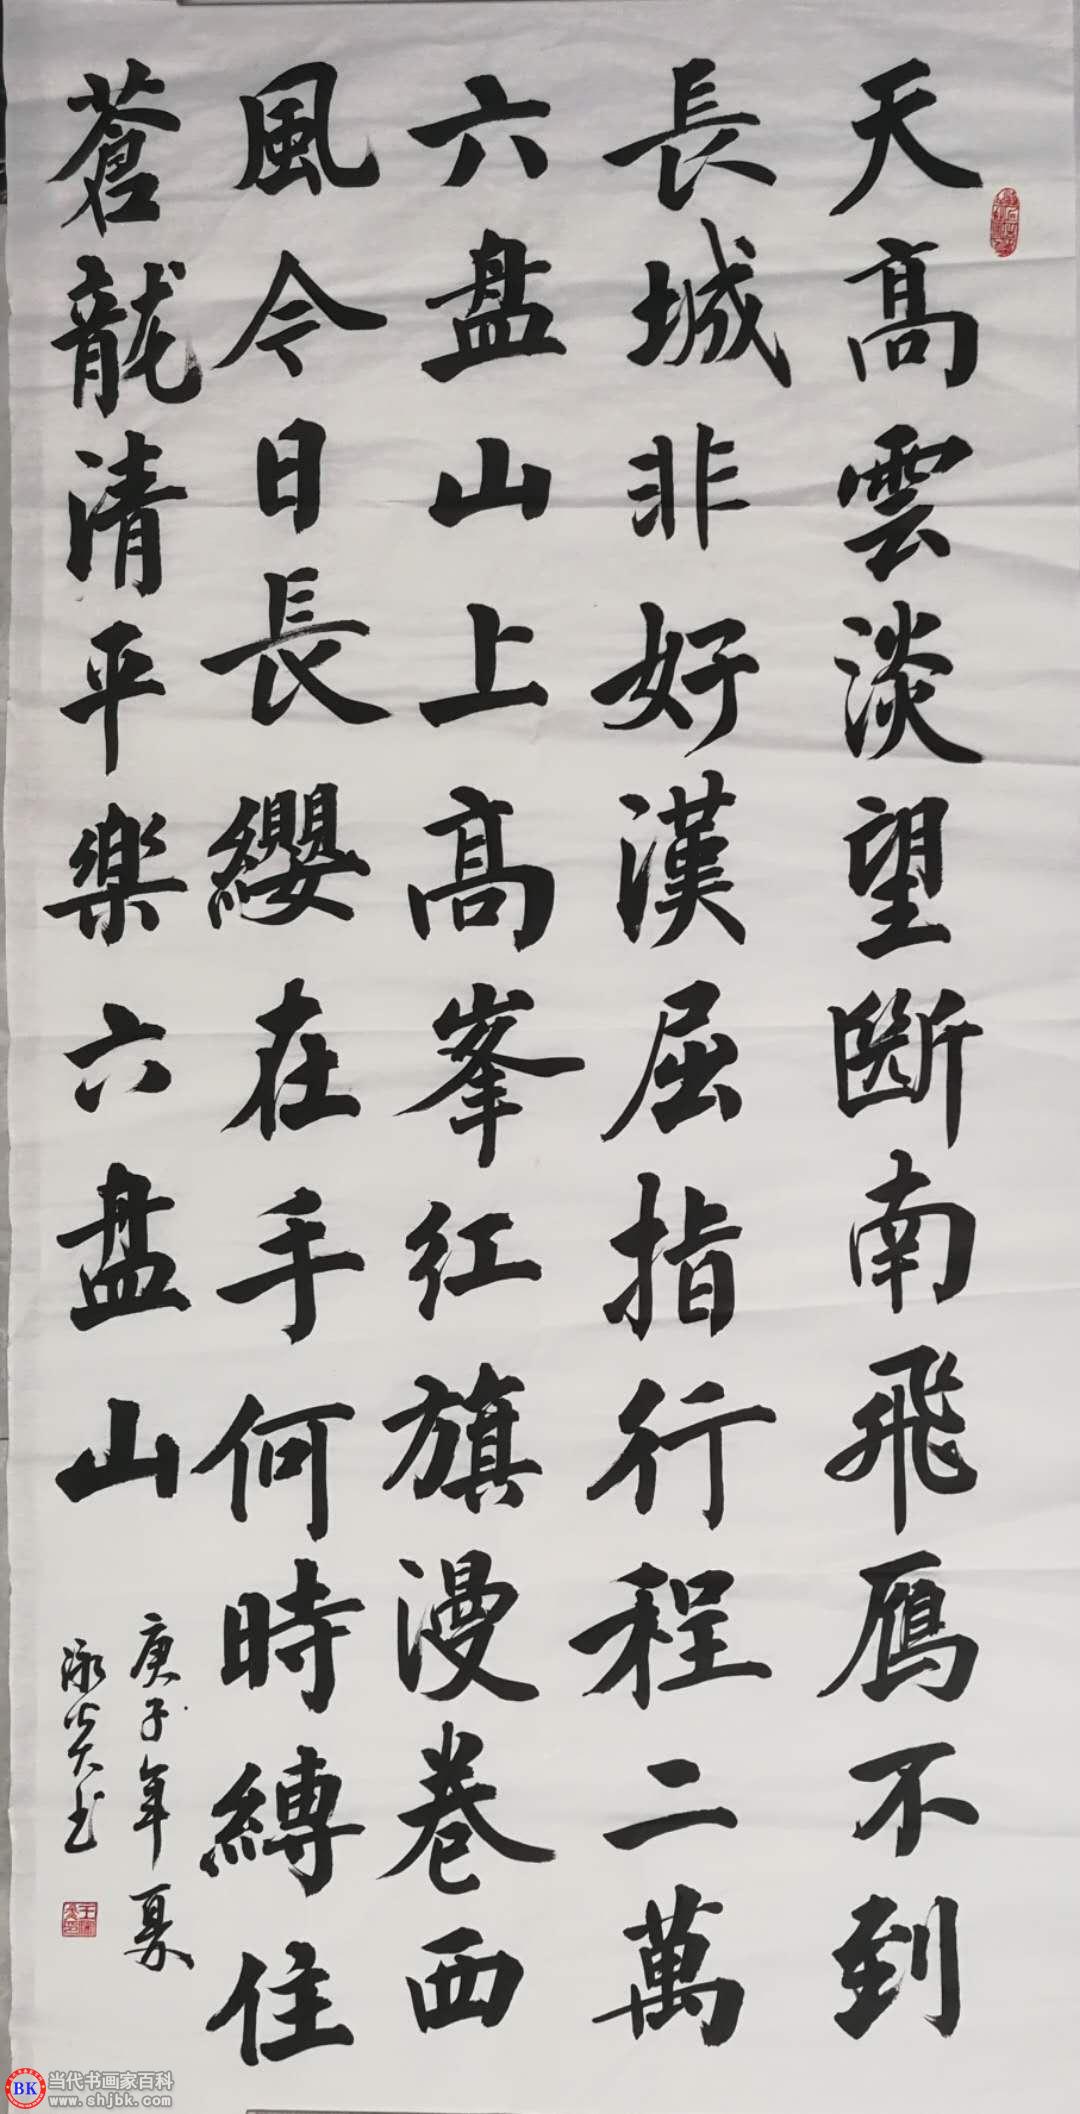 天高雲淡望斷南飛鴈不到
長城非好漢屈指行程二萬
六盘山上高峯红旗漫卷西
風今日長纓在手何時縛住
蒼龍清平樂六盘山
庚子年夏
泳炎书
当代书画家百科
www.shjbk.com
BK